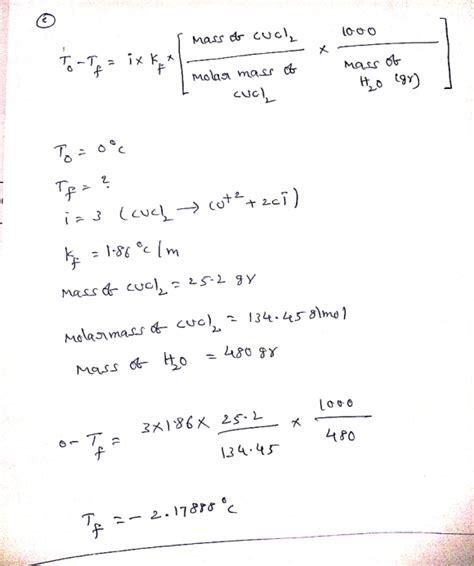 c
T₀-T_f = i x K_f x [ Mass of CuCl₂ / Molar mass of CuCl₂ x 1000 / Mass of H₂O (gr) ]
T₀ = 0°C
T_f = ?
i = 3 (CuCl₂ → Cu⁺² + 2Cl⁻)
K_f = 1.86 °C/m
Mass of CuCl₂ = 25.2 gr
Molarmass of CuCl₂ = 134.45 g/mol
Mass of H₂O = 480 gr
0 - T_f = 3x1.86x 25.2 / 134.45 x 1000 / 480
T_f = - 2.17888°C